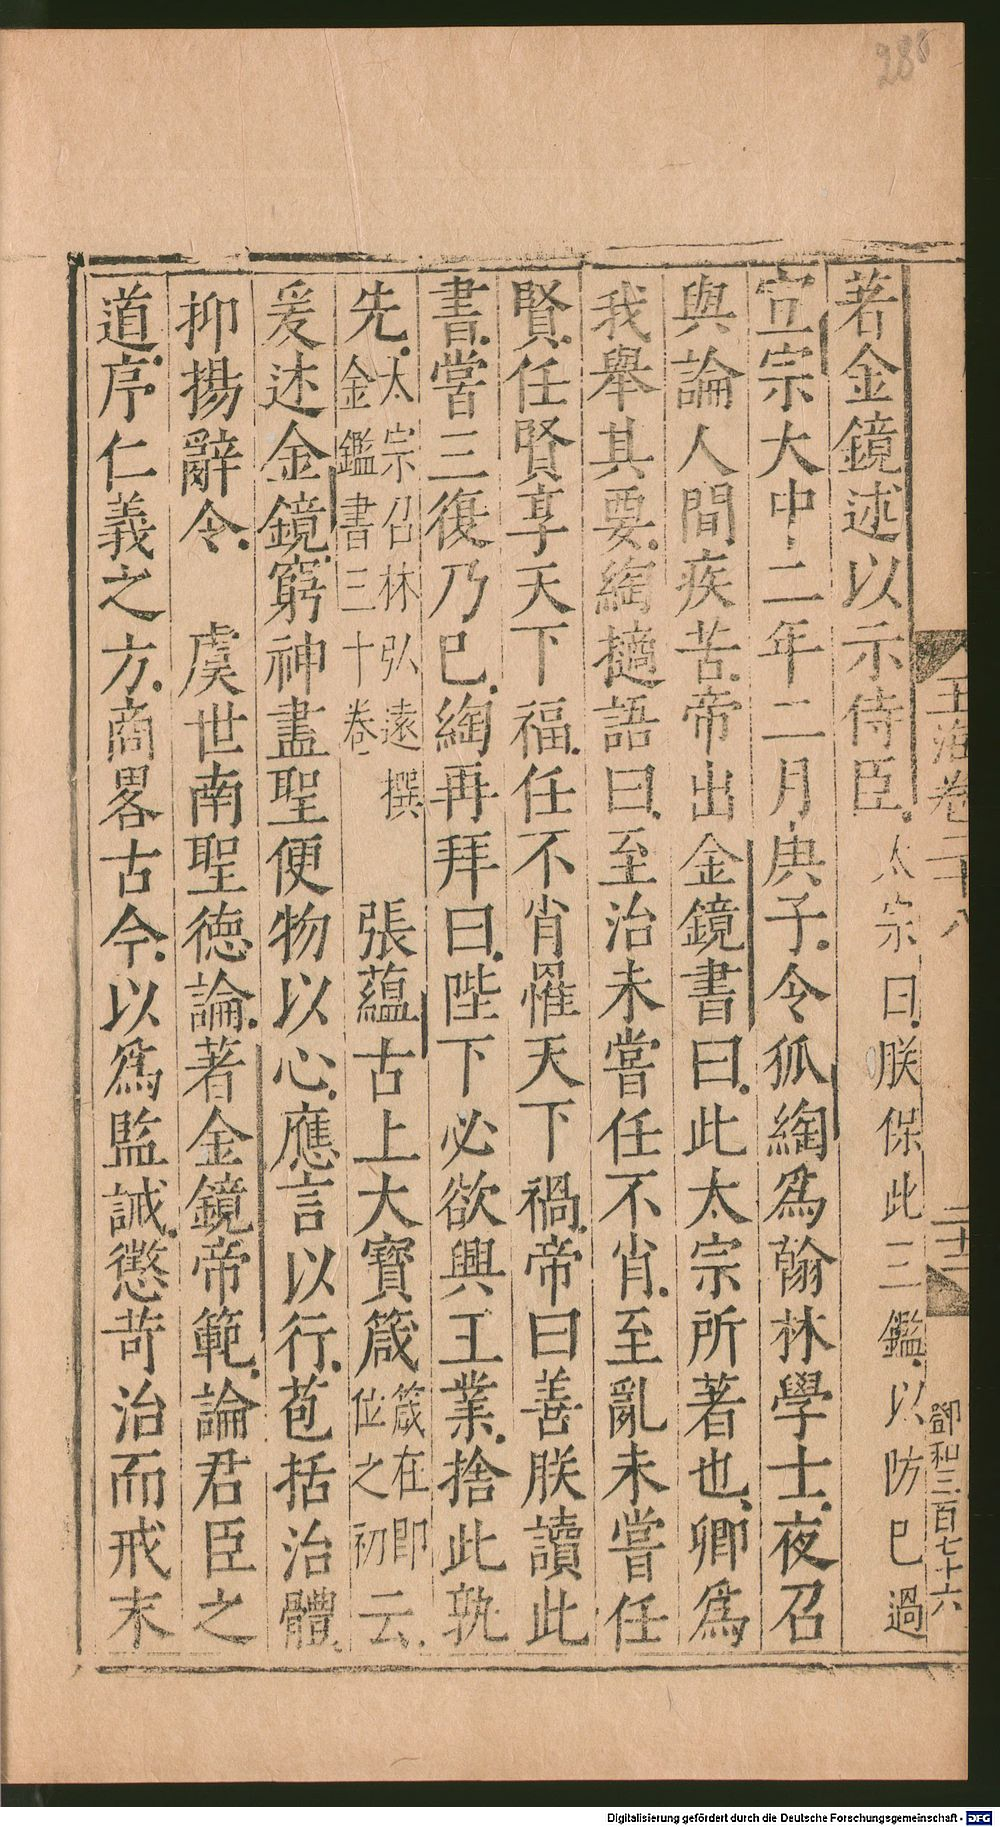 288
玉海卷二十八
二十一
鄧和三百七十六
著金鏡述以示侍臣太宗曰朕保此三鑑以防已過
宣宗大中二年二月庚子令狐綯爲翰林學士夜召
與論人間疾苦帝出金鏡書曰此太宗所著也卿爲
我舉其要綯擿語曰至治未嘗任不肖至亂未嘗任
賢任賢享天下福任不肖罹天下禍帝曰善朕讀此
書嘗三復乃已綯再拜曰陛下必欲興王業捨此孰
先太宗召林弘遠撰金鑑書三十卷 張蘊古上大寶箴箴在即位之初云
爰述金鏡窮神盡聖便物以心應言以行苞括治體
抑揚辭令 虞世南聖德論著金鏡帝範論君臣之
道序仁義之方商畧古今以爲監誡懲苛治而戒末
Digitalisierung gefördert durch die Deutsche Forschungsgemeinschaft - DFG